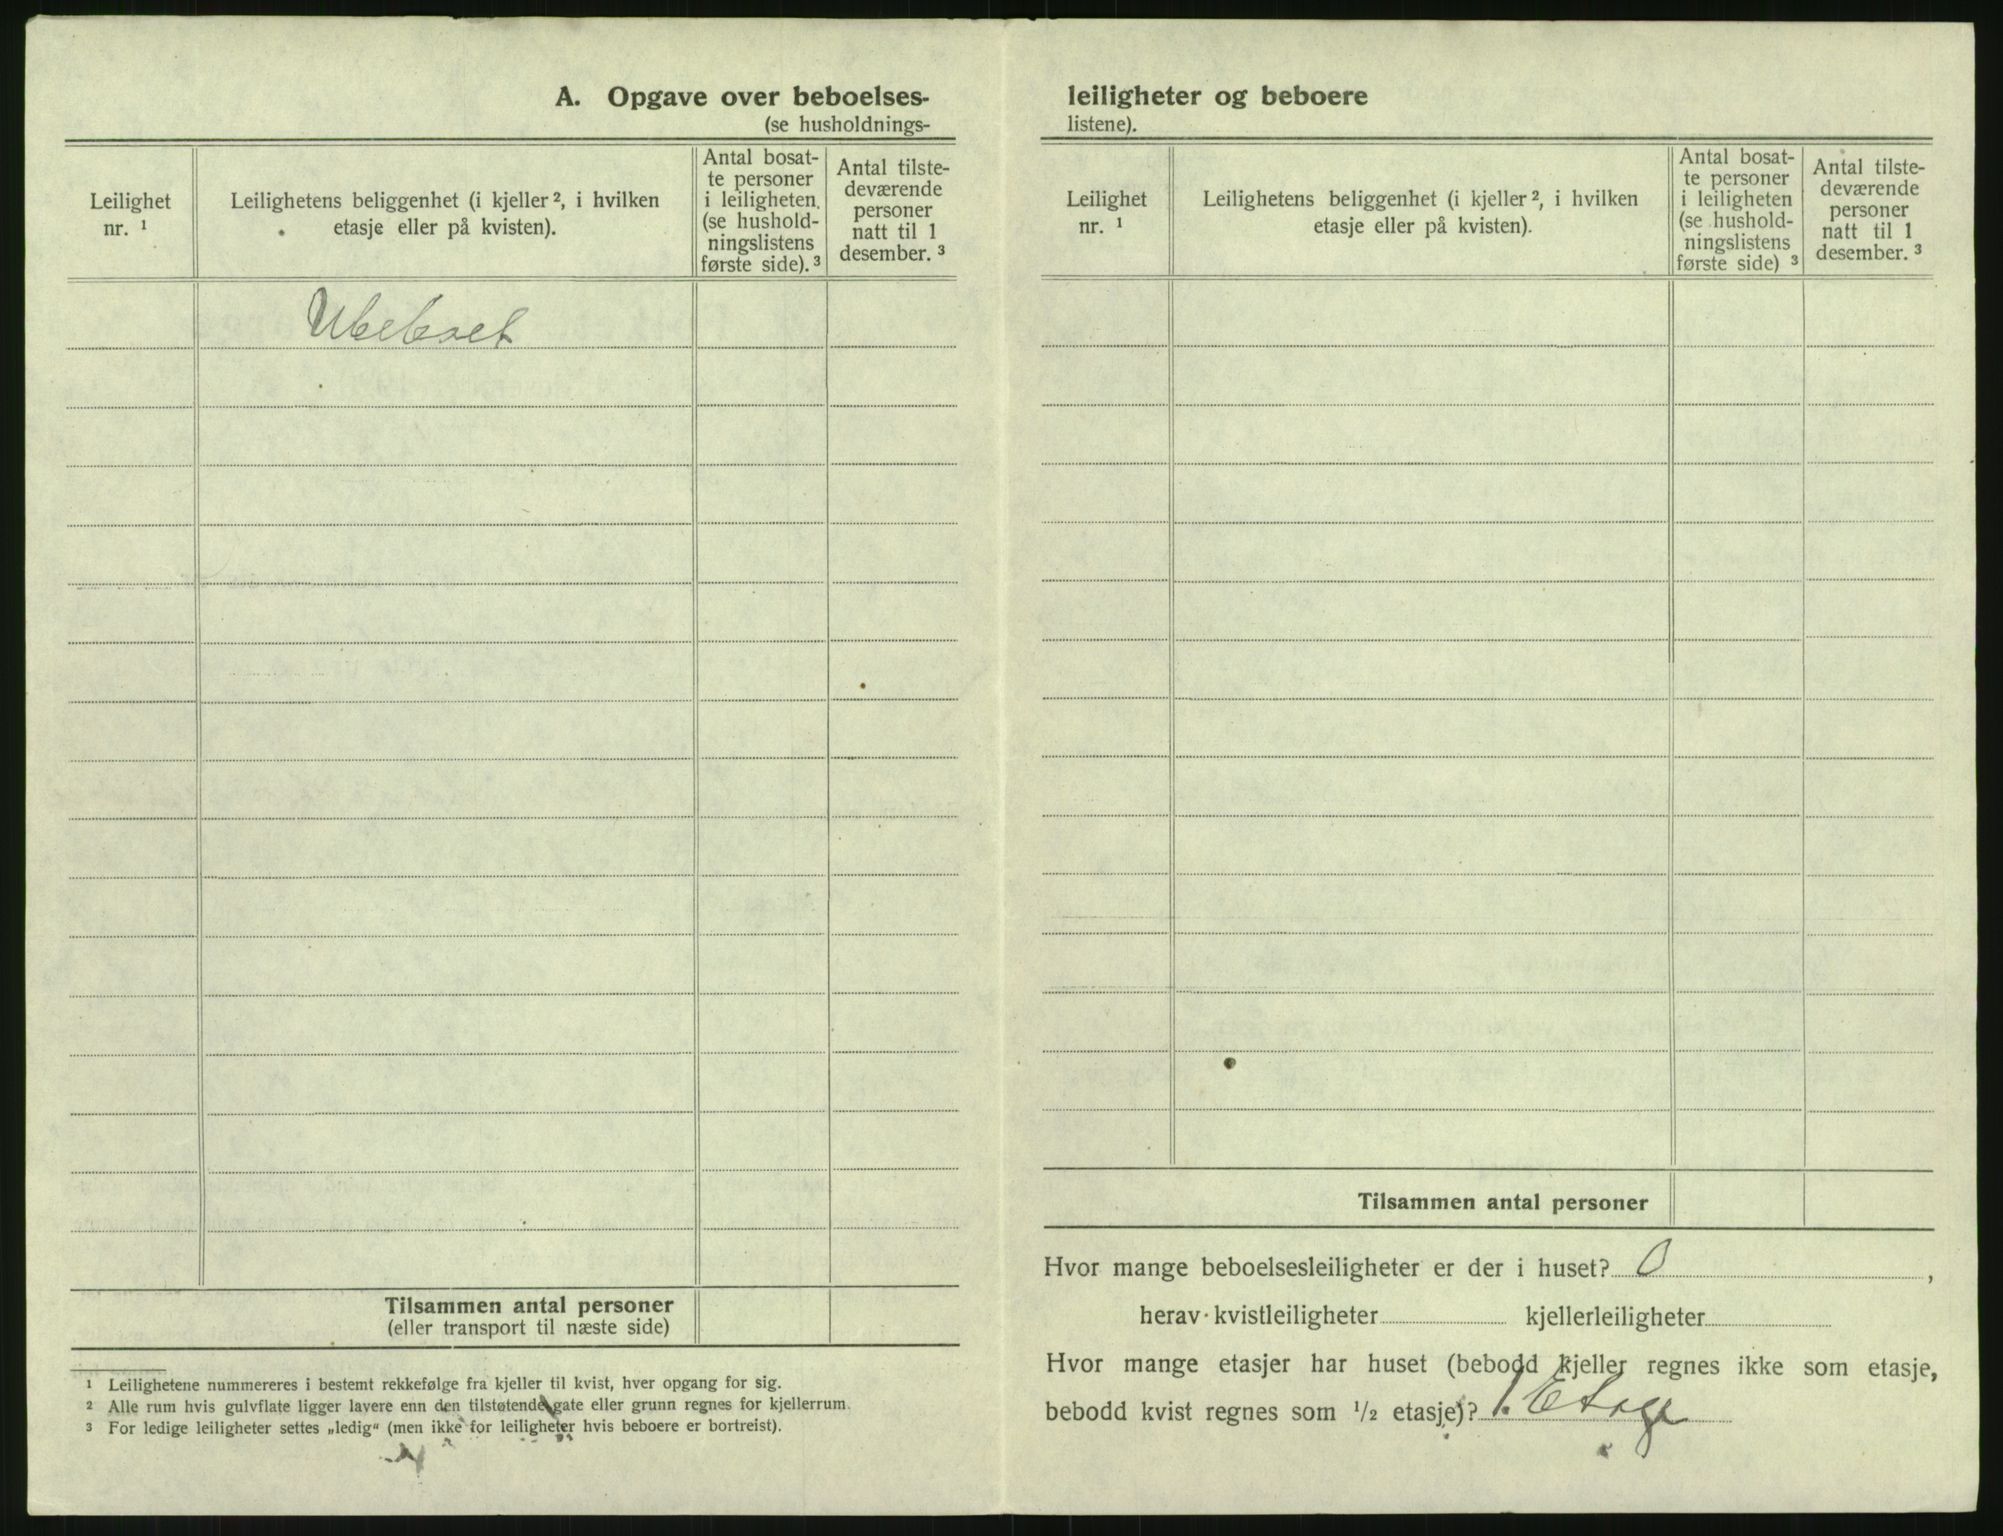 A. Opgave over beboelses-
(se husholdnings-
Leilighet
nr. ¹
Leilighetens beliggenhet (i kjeller ², i hvilken
etasje eller på kvisten).
Antal bosat-
te personer
i leiligheten.
(se hushold-
ningslistens
første side). ³
Antal tilste-
deværende
personer
natt til 1
desember. ³
Ubeboet
Tilsammen antal personer
(eller transport til næste side)
¹ Leilighetene nummereres i bestemt rekkefølge fra kjeller til kvist, hver opgang for sig.
² Alle rum hvis gulvflate ligger lavere enn den tilstøtende gate eller grunn regnes for kjellerrum.
³ For ledige leiligheter settes „ledig“ (men ikke for leiligheter hvis beboere er bortreist).
leiligheter og beboere
listene).
Leilighet
nr. ¹
Leilighetens beliggenhet (i kjeller ², i hvilken
etasje eller på kvisten).
Antal bosat-
te personer
i leiligheten
(se hushold-
ningslistens
første side) ³
Antal tilste-
deværende
personer
natt til 1
desember. ³
Tilsammen antal personer
Hvor mange beboelsesleiligheter er der i huset? 0 ,
herav kvistleiligheter kjellerleiligheter
Hvor mange etasjer har huset (bebodd kjeller regnes ikke som etasje,
bebodd kvist regnes som ½ etasje)? 1. Etage